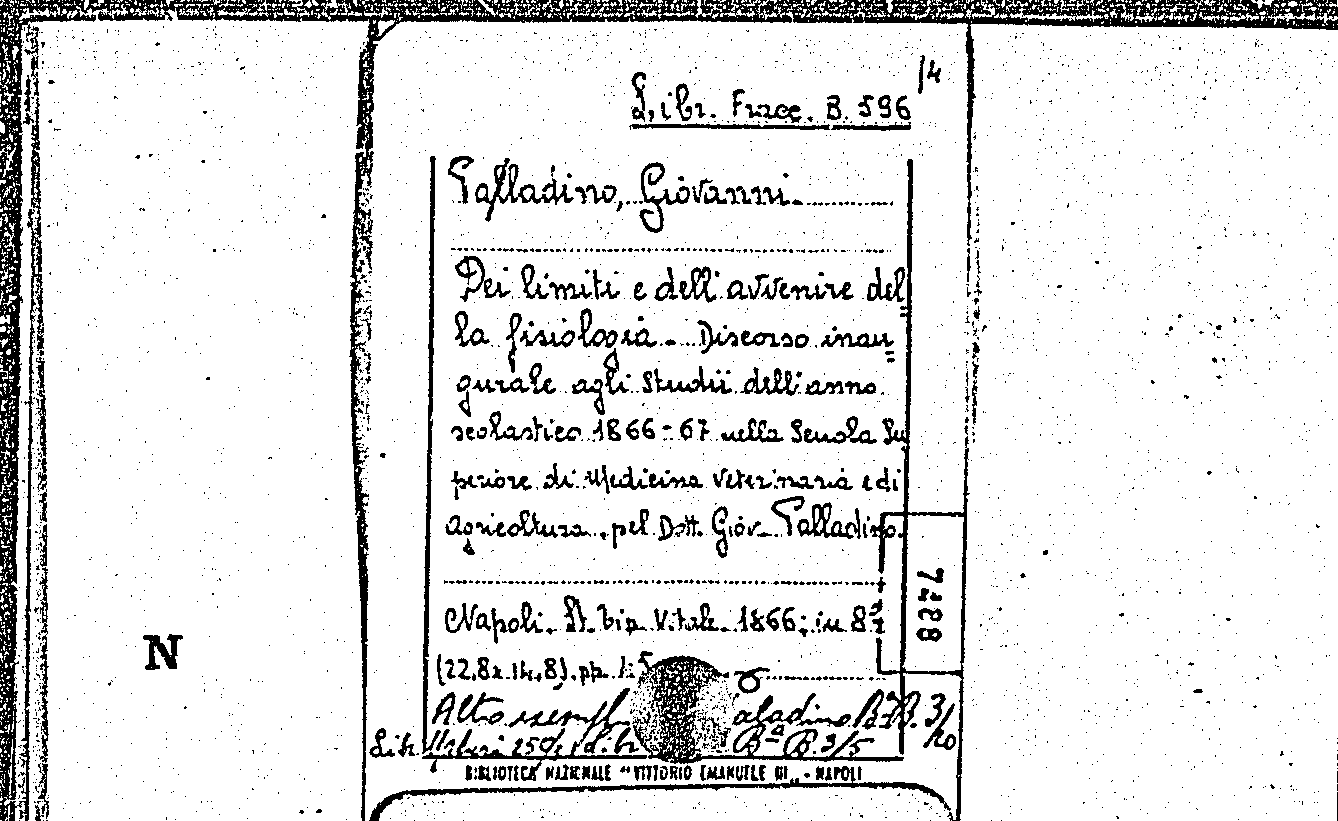 /4
Libr. Fracc. B. 596
Palladino, Giovanni.
Dei limiti e dell'avvenire del=
la fisiologia. Discorso inau=
gurale agli studii dell'anno
scolastico 1866-67 nella Scuola Su
periore di Medicina Veterinaria e di
agricoltura. pel Dott. Giov. Palladino.
7488
Napoli. St. tip. Vitale. 1866; in 8º
(22,8x14,8). pp.
N
Altro esempl aladino Bª B. 3/
20
Lib. 2 Libr Bª B. 3/5
BIBLIOTECA NAZIONALE "VITTORIO EMANUELE III" - NAPOLI